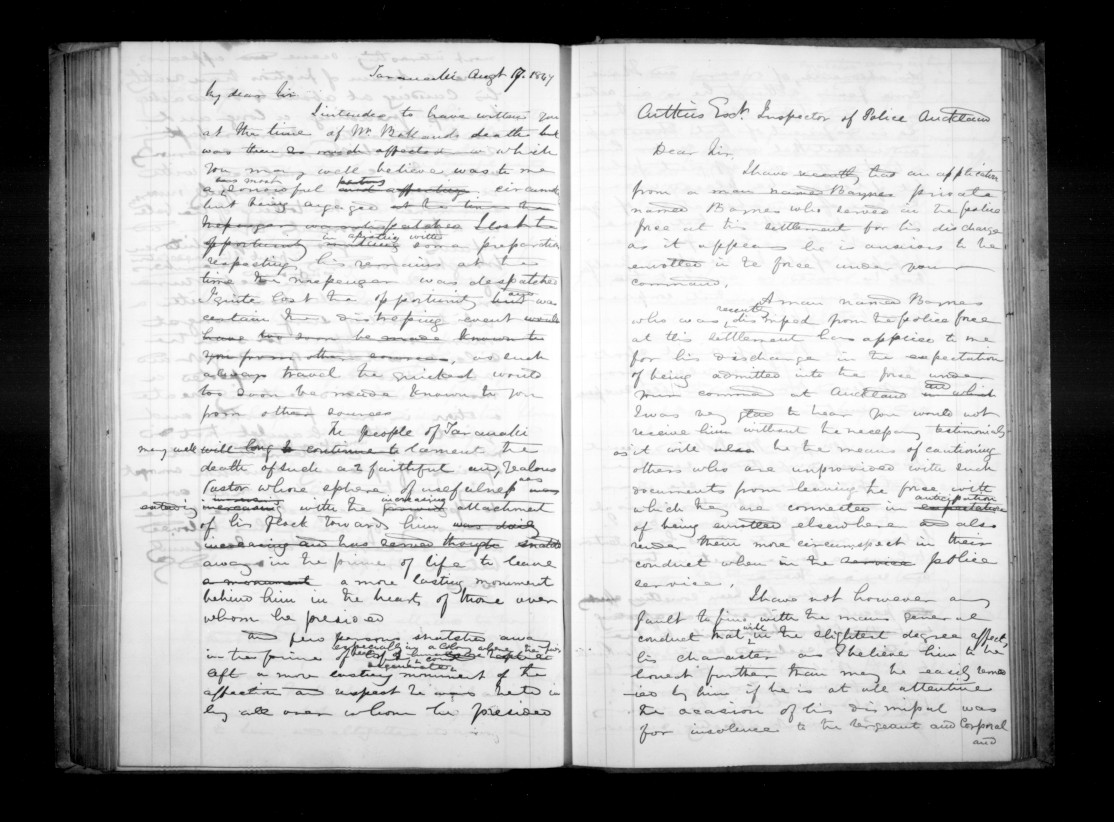 Taranaki Augt 17. 1847
My dear Sir
I intended to have written you
at the time of Mr. Bollands death but
was then so much affected in which
you may well believe was to me
a most sorrowful and affecting circum
but being engaged at the time the
messenger was despatched I lost the
opportunity in affecting with some preparation
respecting his remains at the
time the messenger was despatched
I quite lost the opportunity but and was
certain the distressing event would
have too soon be made known to
you from other sources, as such
always travel the quickest would
too soon be made known to you
from other sources
The people of Taranaki
may well will long to continue to lament the
death of such a faithful and zealous
Pastor whose sphere of usefulness was
increasing with the increasing attachment
of his flock towards him was daily
increasing and has served though snatched
away in the prime of life to leave
a monument a more lasting monument
behind him in the hearts of those over
whom he presided
and few persons snatched away
in the prime of life especially in a Colony where
left a more lasting monument of the
affection and respect he was held in
by all over whom he presided
Outhius Esqr. Inspector of Police Auckland
Dear Sir,
I have recently had an application
from a man named Baynes private
named Baynes who served in the police
force at this settlement for his discharge
as it appears he is anxious to be
enrolled in the force under your
command.
A man named Baynes
who was recently dismissed from the police force
at this settlement has applied to me
for his discharge in the expectation
of being admitted into the force under
your command at Auckland and in which
I was very glad to hear you would not
receive him without the necessary testimonials
as it will also be the means of cautioning
others who are unprovided with such
documents from leaving the force with
which they are connected in anticipation expectation
of being enrolled elsewhere and also
render them more circumspect in their
conduct when in the service police
service.
I have not however any
fault to find with the mans general
conduct that will in the slightest degree affect
his character as I believe him to be
honest further than may be easily remed
-ied by him if he is at all attentive
the occasion of his dismissal was
for insolence to the Sergeant and Corporal
and